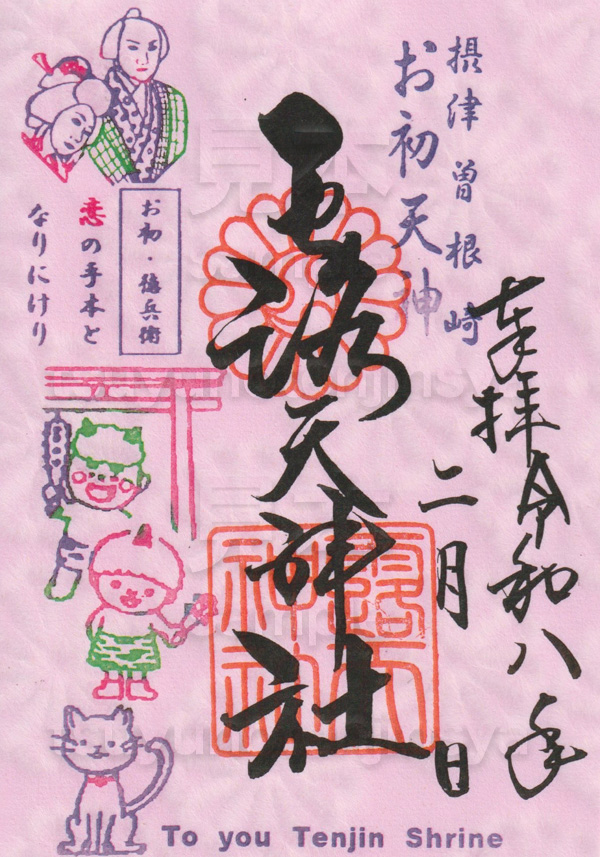 摂津曽根崎
お初天神
奉拝
令和八年
二月 日
露天神社
お初・徳兵衛
恋の手本と
なりにけり
見本
sample
tsuyunotenjinsya
見本
sample
tsuyunotenjinsya
To you Tenjin Shrine